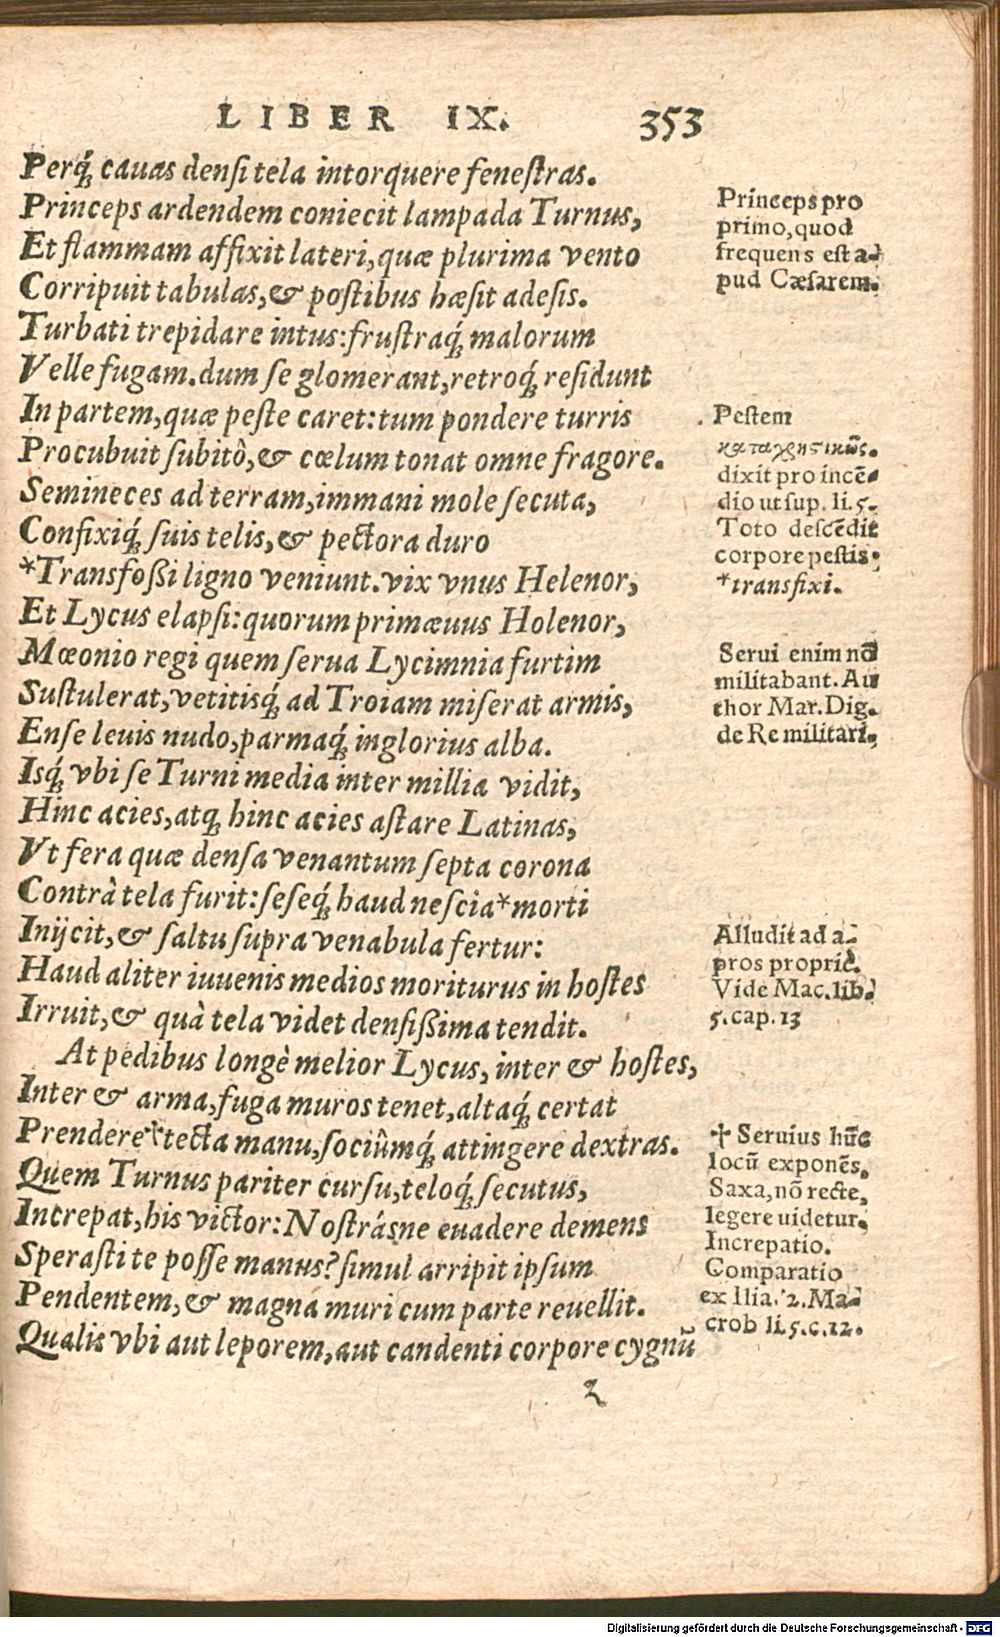 LIBER IX. 353
Perq́; cauas densi tela intorquere fenestras.
Princeps ardendem coniecit lampada Turnus,
Et flammam affixit lateri, quæ plurima vento
Corripuit tabulas, & postibus hæsit adesis.
Turbati trepidare intus: frustraq́; malorum
Velle fugam. dum se glomerant, retroq́; residunt
In partem, quæ peste caret: tum pondere turris
Procubuit subitò, & cœlum tonat omne fragore.
Semineces ad terram, immani mole secuta,
Confixiq́; suis telis, & pectora duro
*Transfoßi ligno veniunt. vix vnus Helenor,
Et Lycus elapsi: quorum primæuus Holenor,
Mœonio regi quem serua Lycimnia furtim
Sustulerat, vetitisq́; ad Troiam miserat armis,
Ense leuis nudo, parmaq́; inglorius alba.
Isq́; vbi se Turni media inter millia vidit,
Hinc acies, atq; hinc acies astare Latinas,
Vt fera quæ densa venantum septa corona
Contrà tela furit: seseq́; haud nescia*morti
Inijcit, & saltu supra venabula fertur:
Haud aliter iuuenis medios moriturus in hostes
Irruit, & quà tela videt densißima tendit.
At pedibus longè melior Lycus, inter & hostes,
Inter & arma, fuga muros tenet, altaq́; certat
Prendere†tecta manu, sociûmq́; attingere dextras.
Quem Turnus pariter cursu, teloq́; secutus,
Increpat, his victor: Nostrásne euadere demens
Sperasti te posse manus? simul arripit ipsum
Pendentem, & magna muri cum parte reuellit.
Qualis vbi aut leporem, aut candenti corpore cygnũ
z
Princeps pro
primo, quod
frequens est a-
pud Cæsarem.
Pestem
καταχρηστικῶς.
dixit pro incē-
dio ut sup. li. 5.
Toto descēdit
corpore pestis.
*transfixi.
Serui enim nō
militabant. Au
thor Mar. Dig.
de Re militari.
Alludit ad a-
pros propriè.
Vide Mac. lib.
5. cap. 13
† Seruius hūc
locū exponēs,
Saxa, nō recte,
legere uidetur.
Increpatio.
Comparatio
ex Ilia. 2. Ma-
crob li. 5. c. 12.
Digitalisierung gefördert durch die Deutsche Forschungsgemeinschaft - DFG